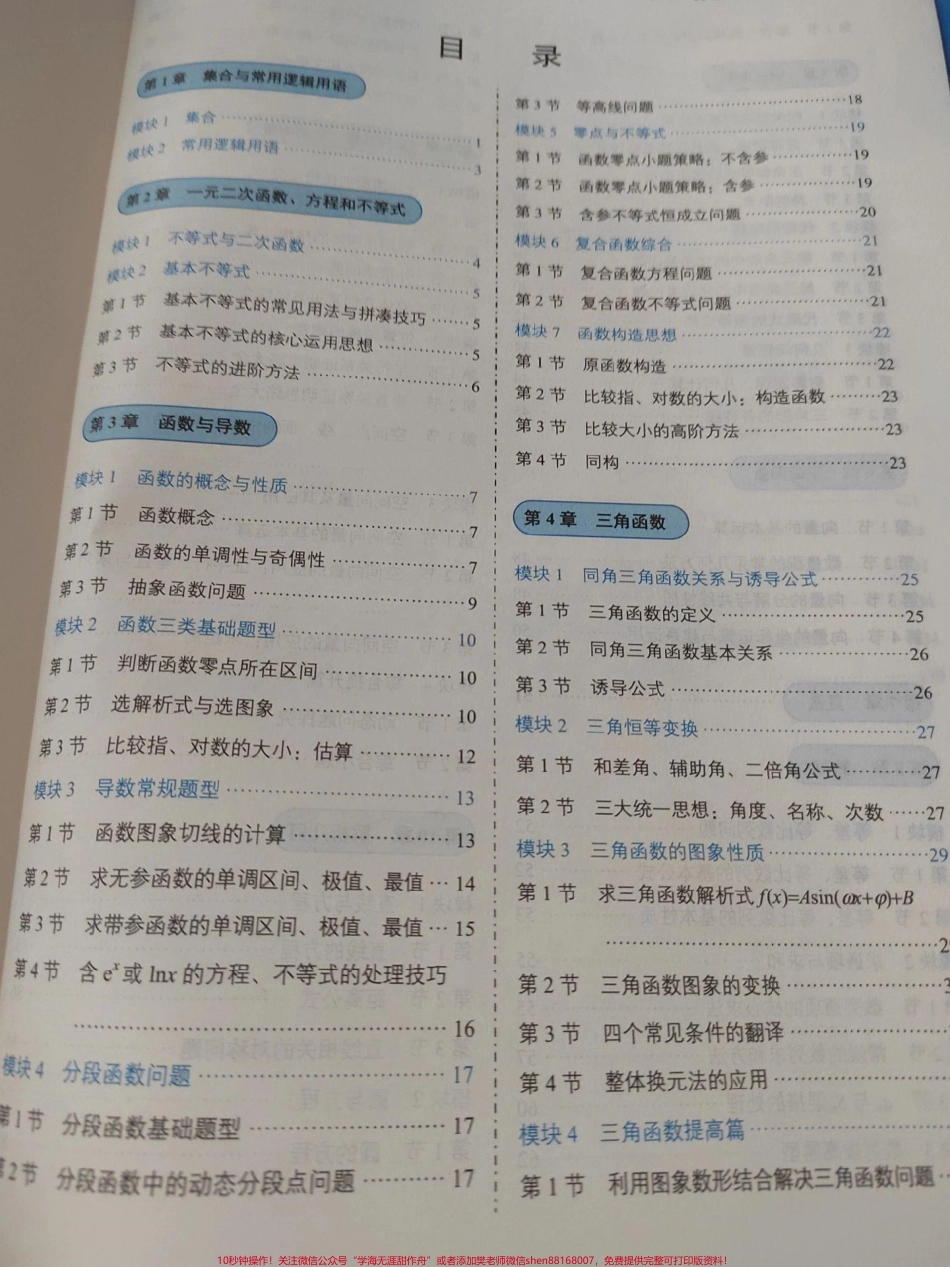 目 录
第1章 集合与常用逻辑用语
模块1 集合……1
模块2 常用逻辑用语……3
第2章 一元二次函数、方程和不等式
模块1 不等式与二次函数……4
模块2 基本不等式……5
第1节 基本不等式的常见用法与拼凑技巧……5
第2节 基本不等式的核心运用思想……5
第3节 不等式的进阶方法……6
第3章 函数与导数
模块1 函数的概念与性质……7
第1节 函数概念……7
第2节 函数的单调性与奇偶性……7
第3节 抽象函数问题……9
模块2 函数三类基础题型……10
第1节 判断函数零点所在区间……10
第2节 选解析式与选图象……10
第3节 比较指、对数的大小：估算……12
模块3 导数常规题型……13
第1节 函数图象切线的计算……13
第2节 求无参函数的单调区间、极值、最值…14
第3节 求带参函数的单调区间、极值、最值…15
第4节 含eˣ或lnx的方程、不等式的处理技巧
……16
模块4 分段函数问题……17
第1节 分段函数基础题型……17
第2节 分段函数中的动态分段点问题……17
第3节 等高线问题……18
模块5 零点与不等式……19
第1节 函数零点小题策略：不含参……19
第2节 函数零点小题策略：含参……19
第3节 含参不等式恒成立问题……20
模块6 复合函数综合……21
第1节 复合函数方程问题……21
第2节 复合函数不等式问题……21
模块7 函数构造思想……22
第1节 原函数构造……22
第2节 比较指、对数的大小：构造函数……23
第3节 比较大小的高阶方法……23
第4节 同构……23
第4章 三角函数
模块1 同角三角函数关系与诱导公式……25
第1节 三角函数的定义……25
第2节 同角三角函数基本关系……26
第3节 诱导公式……26
模块2 三角恒等变换……27
第1节 和差角、辅助角、二倍角公式……27
第2节 三大统一思想：角度、名称、次数……27
模块3 三角函数的图象性质……29
第1节 求三角函数解析式f(x)=Asin(ωx+φ)+B
……2
第2节 三角函数图象的变换……3
第3节 四个常见条件的翻译……
第4节 整体换元法的应用……
模块4 三角函数提高篇……
第1节 利用图象数形结合解决三角函数问题…
10秒钟操作！关注微信公众号“学海无涯甜作舟”或者添加樊老师微信shen88168007，免费提供完整可打印版资料！